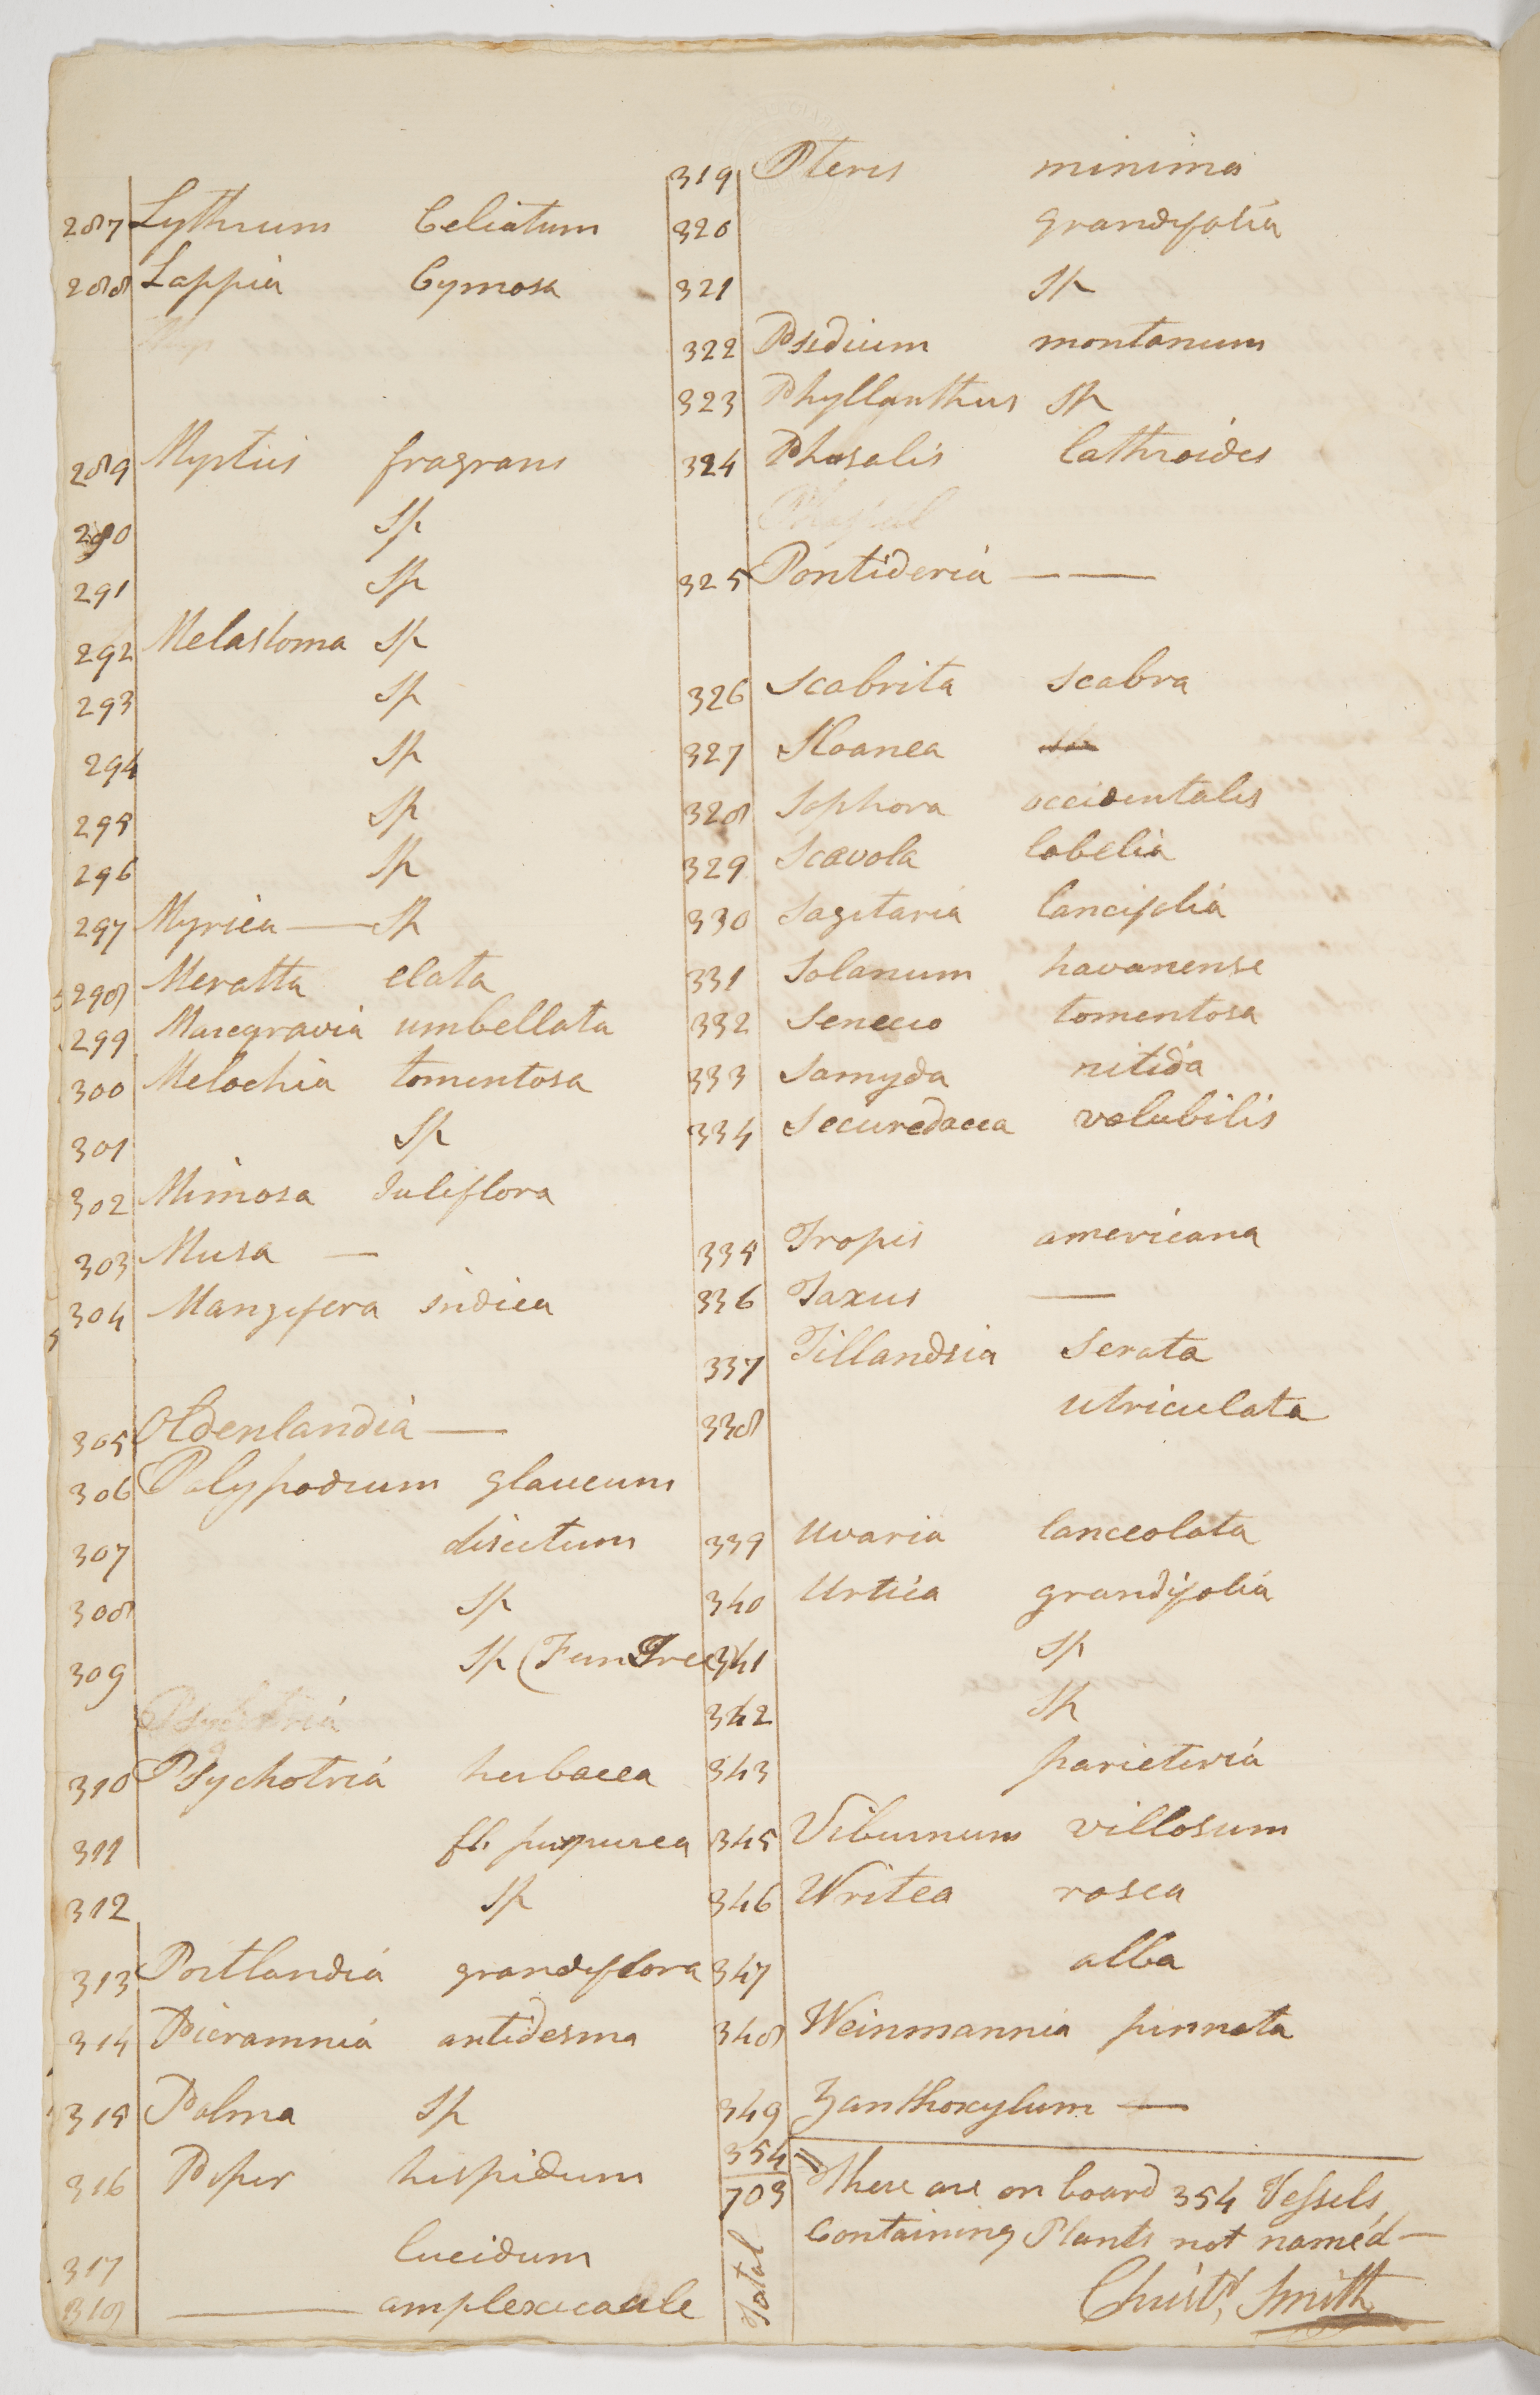 287 Lythrum Celiatum
288 Lappia Cymosa
289 Myrtus fragrans
290 Sp
291 Sp
292 Melastoma Sp
293 Sp
294 Sp
295 Sp
296 Sp
297 Myrica — Sp
298 Meratta elata
299 Marcgravia umbellata
300 Melochia tomentosa
301 Sp
302 Mimosa Juliflora
303 Musa —
304 Mangifera indica
305 Oldenlandia —
306 Polypodium glaucum
307 disectum
308 Sp
309 Sp (Fun Tree)
310 Psychotria herbacea
311 fl. purpurea
312 Sp
313 Portlandia grandiflora
314 Picramnia antidesma
315 Palma Sp
316 Piper hispidum
317 lucidum
318 — amplexicaule
319 Pteris minima
320 grandifolia
321 Sp
322 Psidium montanum
323 Phyllanthus Sp
324 Phasalis lathroides
325 Pontideria — —
326 Scabrita scabra
327 Sloanea
328 Sophora occidentalis
329 Scavola lobelia
330 Sagitaria lancifolia
331 Solanum havanense
332 Senecio tomentosa
333 Samyda nitida
334 Securedacea volubilis
335 Tropis americana
336 Taxus —
337 Tillandsia Serata
338 utriculata
339 Uvaria lanceolata
340 Urtica grandifolia
341 Sp
342 Sp
343 parieteria
345 Viburnum villosum
346 Writea rosea
347 alba
348 Weinmannia pinnata
349 Zanthoxylum —
354 = There are on board 354 Vessels
703 Containing Plants not named —
Total
Christ. Smith